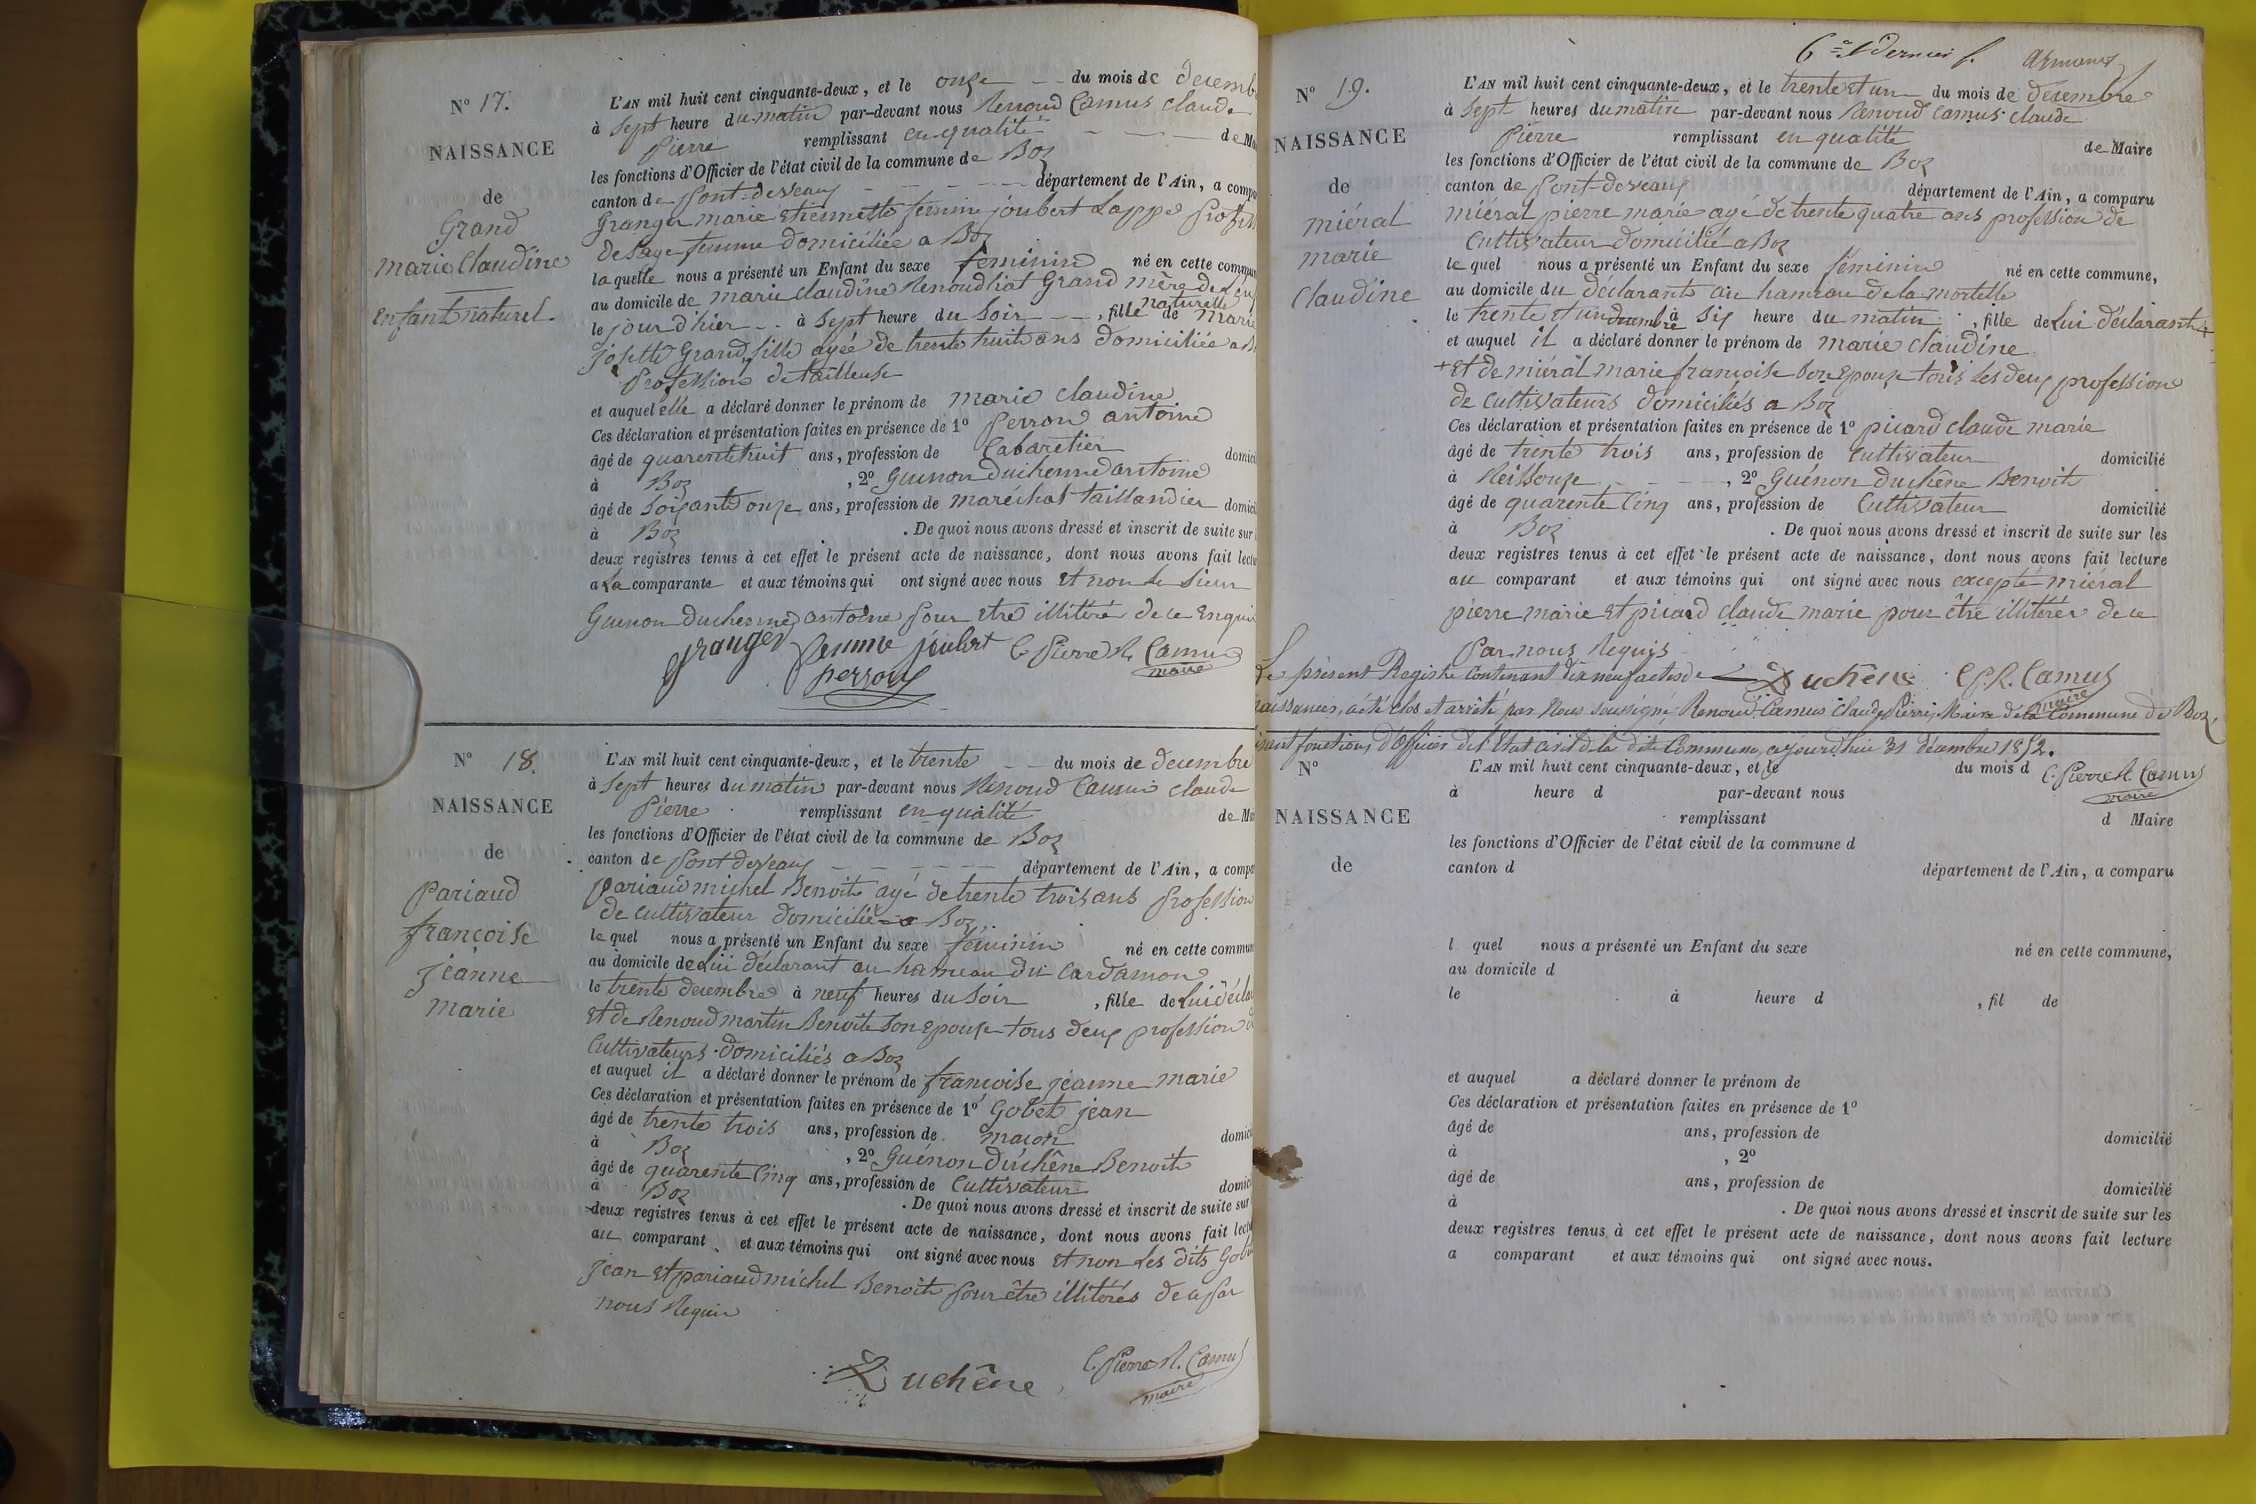 N° 17.
NAISSANCE
de
Grand
marie Claudine
enfant naturel.
L'AN mil huit cent cinquante-deux, et le onze du mois de decemb
à sept heure du matin par-devant nous Renoud Camus claude
Pierre remplissant en qualité de M
les fonctions d'Officier de l'état civil de la commune de Boz
canton de Pont-devaux département de l'Ain, a compa
Granger marie etiennette femme joubert
de sage femme domiciliée a Boz
laquelle nous a présenté un Enfant du sexe feminin né en cette commun
au domicile de marie claudine Renoud liat Grand mère de
le jour d'hier à sept heure du soir, fille naturelle de marie
josette Grand fille agée de trente huit ans domiciliée a B
profession de tailleuse
et auquel elle a déclaré donner le prénom de marie claudine
Ces déclaration et présentation faites en présence de 1° Perron antoine
âgé de quarente huit ans, profession de Cabaretier domici
à Boz, 2° Guenon duchenne antoine
âgé de soixante onze ans, profession de maréchal taillandier domici
à Boz. De quoi nous avons dressé et inscrit de suite sur
deux registres tenus à cet effet le présent acte de naissance, dont nous avons fait lectu
a la comparante et aux témoins qui ont signé avec nous et non le sieur
Guenon duchenne antoine pour etre illitéré de ce enqui
granger femme joubert C Pierre R. Camus
perron maire
N° 18.
NAISSANCE
de
pariaud
françoise
jeanne
marie
L'AN mil huit cent cinquante-deux, et le trente du mois de decembre
à sept heures du matin par-devant nous Renoud Camus claude
Pierre remplissant en qualité de M
les fonctions d'Officier de l'état civil de la commune de Boz
canton de Pont devaux département de l'Ain, a compa
pariaud michel Benoit agé de trente trois ans profession
de cultivateur domicilié a Boz
le quel nous a présenté un Enfant du sexe féminin né en cette commun
au domicile de lui déclarant au hameau du cardamon
le trente decembre à neuf heures du soir, fille de lui décla
et de Renoud martin Benoite son epouse tous deux profession
Cultivateurs domiciliés a Boz
et auquel il a déclaré donner le prénom de françoise jeanne marie
Ces déclaration et présentation faites en présence de 1° Gobet jean
âgé de trente trois ans, profession de maçon domici
à Boz, 2° Guénon duchêne Benoit
âgé de quarente Cinq ans, profession de Cultivateur domici
à Boz. De quoi nous avons dressé et inscrit de suite sur
deux registres tenus à cet effet le présent acte de naissance, dont nous avons fait lectu
au comparant et aux témoins qui ont signé avec nous et non les dits Gob
jean et pariaud michel Benoit pour être illitérés de ce par
nous Requis
Duchêne C. Pierre R. Camus
maire
6e et dernier f. Armand
N° 19.
NAISSANCE
de
miéral
marie
Claudine
L'AN mil huit cent cinquante-deux, et le trente et un du mois de decembre
à sept heures du matin par-devant nous Renoud Camus claude
Pierre remplissant en qualité de Maire
les fonctions d'Officier de l'état civil de la commune de Boz
canton de Pont-devaux département de l'Ain, a comparu
miéral pierre marie agé de trente quatre ans profession de
Cultivateur domicilié a Boz
le quel nous a présenté un Enfant du sexe féminin né en cette commune,
au domicile du déclarant au hameau de la mortelle
le trente et un decembre à six heure du matin, fille de Lui déclarant +
et auquel il a déclaré donner le prénom de marie claudine
+ et de miéral marie françoise son epouse tous les deux profession
de cultivateurs domiciliés a Boz
Ces déclaration et présentation faites en présence de 1° picard claude marie
âgé de trente trois ans, profession de Cultivateur domicilié
à Reissouze, 2° Guénon duchêne Benoit
âgé de quarente Cinq ans, profession de Cultivateur domicilié
à Boz. De quoi nous avons dressé et inscrit de suite sur les
deux registres tenus à cet effet le présent acte de naissance, dont nous avons fait lecture
au comparant et aux témoins qui ont signé avec nous excepté miéral
pierre marie et picard claude marie pour être illitérés de ce
Par nous Requis
Duchêne C.P.R. Camus
maire
Le présent Registre contenant dix neuf actes de
naissances, a été clos et arrêté par Nous soussigné, Renoud Camus Claude Pierre, Maire de la Commune de Boz,
isant fonctions d'officier de l'Etat civil de la dite Commune, cejourd'hui 31 décembre 1852.
C. Pierre R. Camus
maire
N°
NAISSANCE
de
L'AN mil huit cent cinquante-deux, et le du mois d
à heure d par-devant nous
remplissant d Maire
les fonctions d'Officier de l'état civil de la commune d
canton d département de l'Ain, a comparu
l quel nous a présenté un Enfant du sexe né en cette commune,
au domicile d
le à heure d, fil de
et auquel a déclaré donner le prénom de
Ces déclaration et présentation faites en présence de 1°
âgé de ans, profession de domicilié
à, 2°
âgé de ans, profession de domicilié
à. De quoi nous avons dressé et inscrit de suite sur les
deux registres tenus à cet effet le présent acte de naissance, dont nous avons fait lecture
a comparant et aux témoins qui ont signé avec nous.